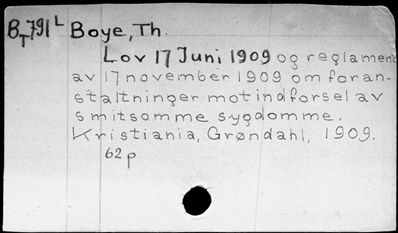 B_T 791 L Boye, Th.
Lov 17 Juni 1909 og reglament
av 17 november 1909 om foran-
staltninger mot indforsel av
smitsomme sygdomme.
Kristiania, Grøndahl, 1909.
62 p